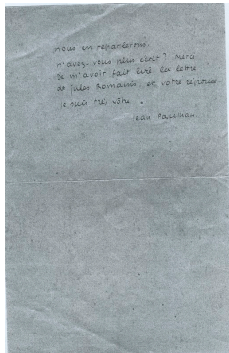 nous en reparlerons.
n'avez-vous plus écrit ? Merci
de m'avoir fait lire la lettre
de Jules Romains, et votre réponse.
je suis très vôtre.
Jean Paulhan